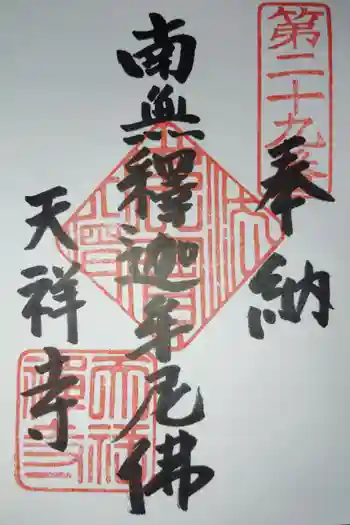 第二十九番
奉納
南無釋迦牟尼佛
天祥寺
天祥禅寺